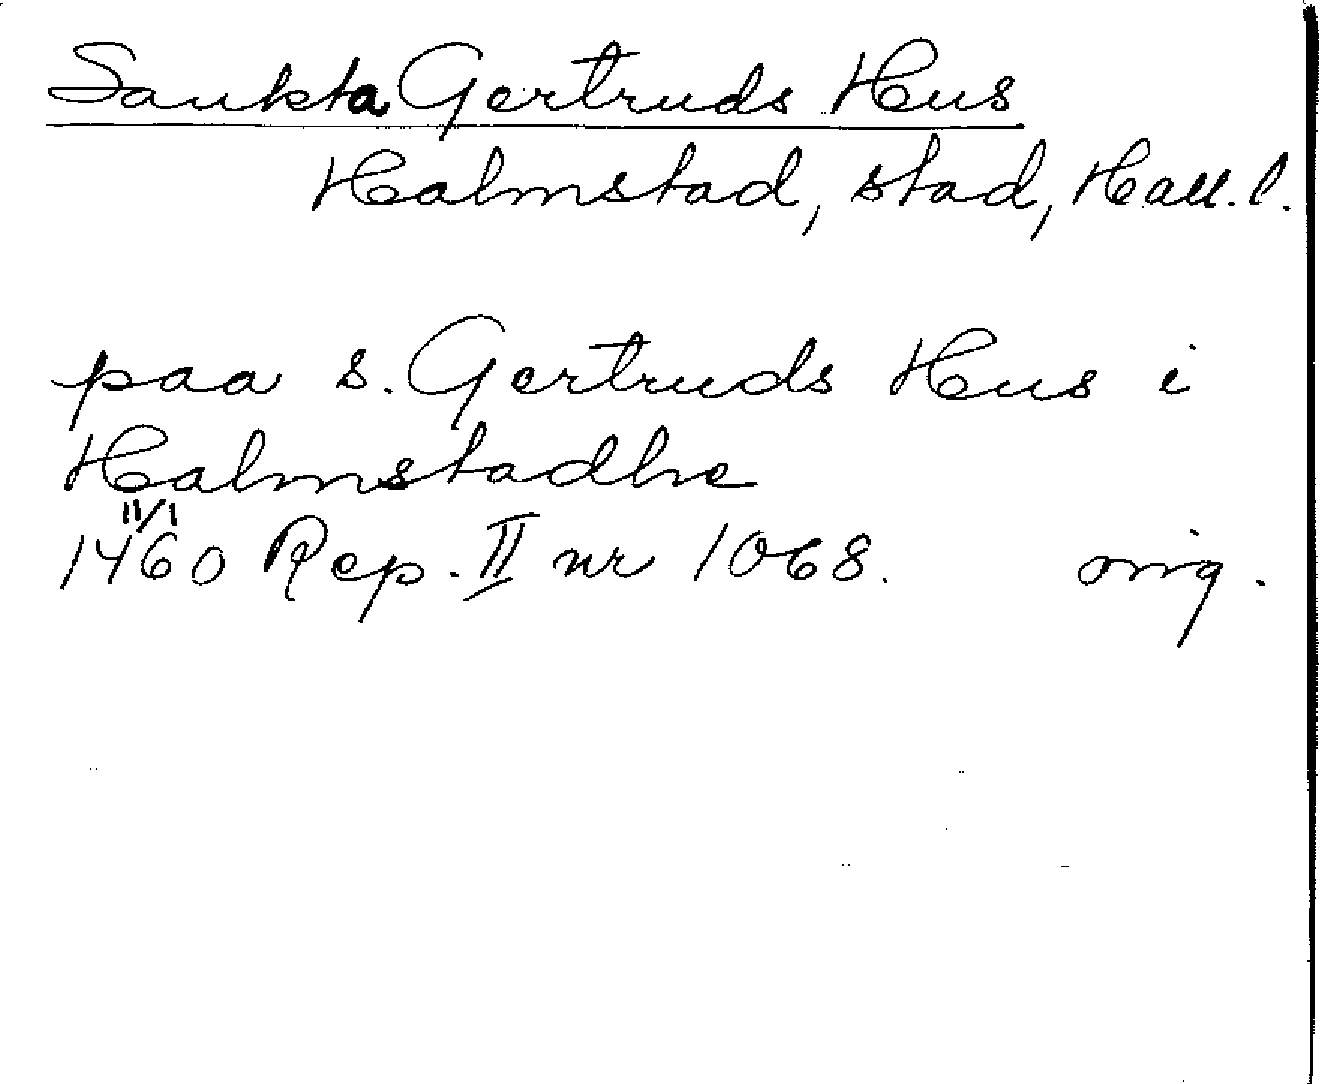 Sankta Gertruds Hus
Halmstad, stad, Hall. l.
paa s. Gertruds Hus i
Halmstadhe
11/1
1460 Rep. II nr 1068. orig.